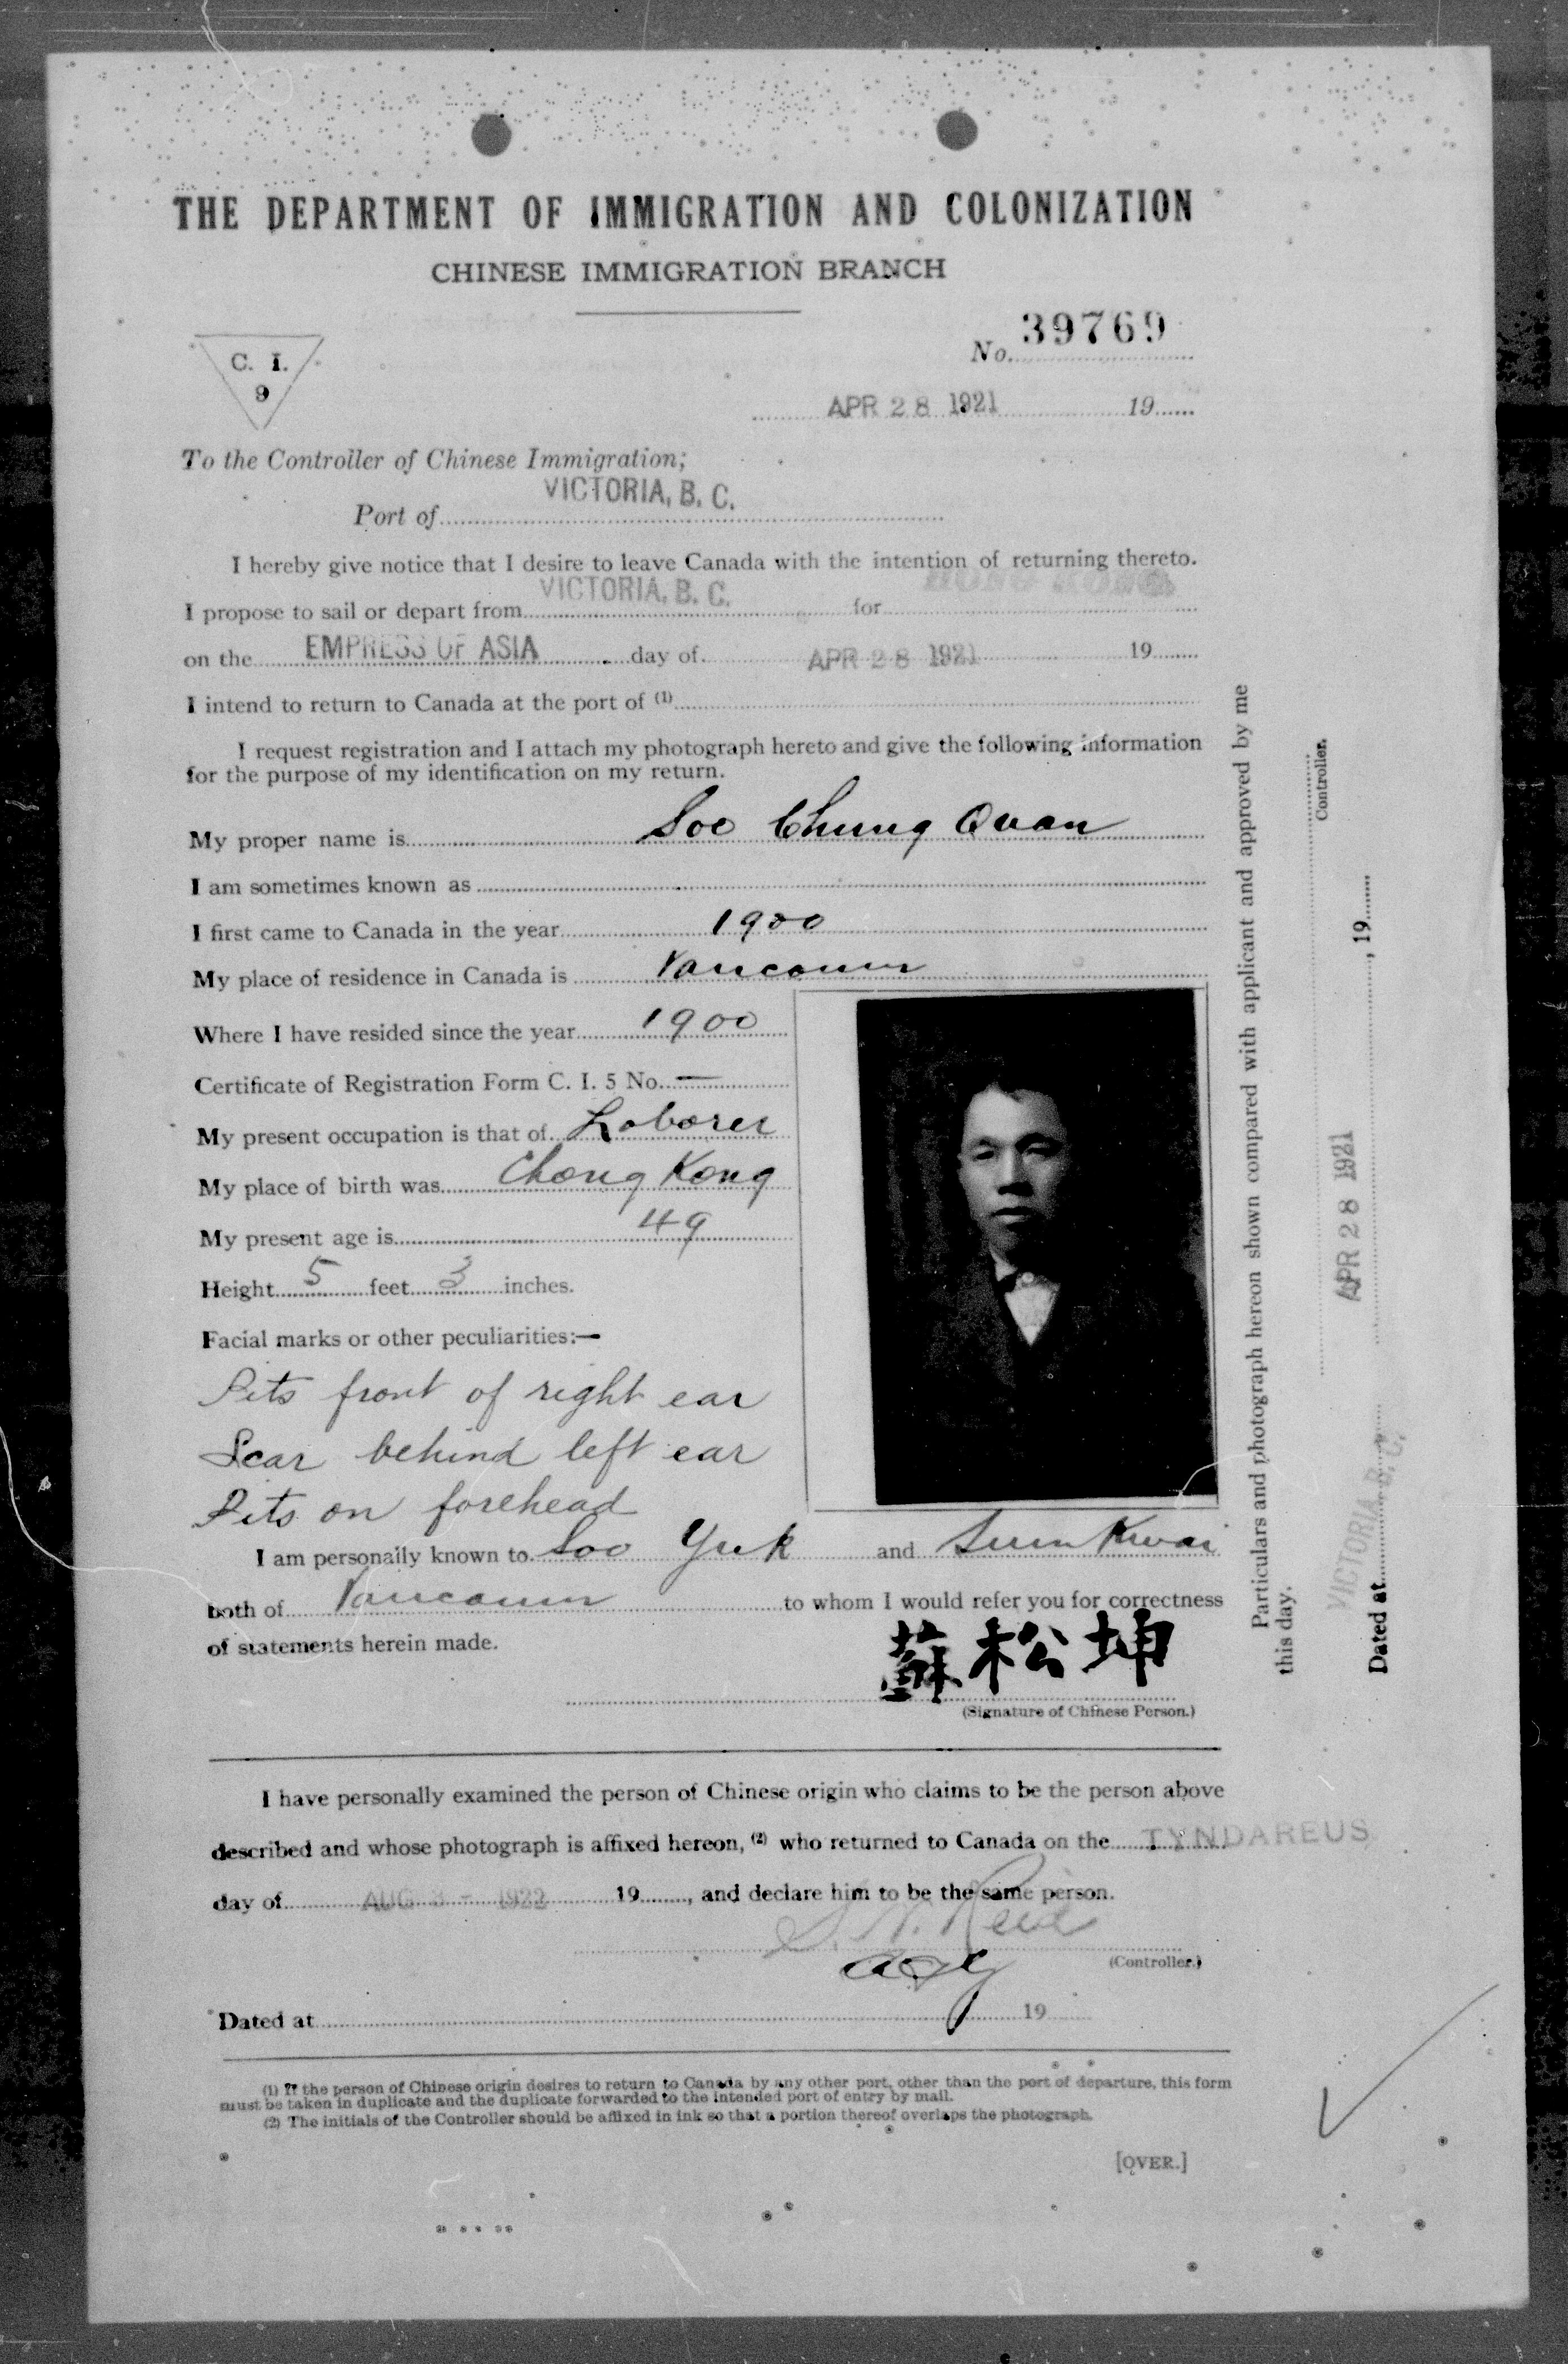 THE DEPARTMENT OF IMMIGRATION AND COLONIZATION
CHINESE IMMIGRATION BRANCH
C. I.
9
No. 39769
APR 28 1921 19
To the Controller of Chinese Immigration;
Port of VICTORIA, B. C.
I hereby give notice that I desire to leave Canada with the intention of returning thereto.
I propose to sail or depart from VICTORIA, B. C. for HONG KONG
on the EMPRESS OF ASIA day of APR 28 1921 19
I intend to return to Canada at the port of (1)
I request registration and I attach my photograph hereto and give the following information
for the purpose of my identification on my return.
My proper name is Soo Chung Quan
I am sometimes known as
I first came to Canada in the year 1900
My place of residence in Canada is Vancouver
Where I have resided since the year 1900
Certificate of Registration Form C. I. 5 No. —
My present occupation is that of Laborer
My place of birth was Chong Kong
My present age is 49
Height 5 feet 3 inches.
Facial marks or other peculiarities:—
Pits front of right ear
Scar behind left ear
Pits on forehead
I am personally known to Soo Yuk and Sum Kwai
both of Vancouver to whom I would refer you for correctness
of statements herein made.
蘇松坤
(Signature of Chinese Person.)
I have personally examined the person of Chinese origin who claims to be the person above
described and whose photograph is affixed hereon, (2) who returned to Canada on the TYNDAREUS
day of AUG 3 - 1922 19, and declare him to be the same person.
(Controller.)
Dated at 19
(1) If the person of Chinese origin desires to return to Canada by any other port, other than the port of departure, this form
must be taken in duplicate and the duplicate forwarded to the intended port of entry by mail.
(2) The initials of the Controller should be affixed in ink so that a portion thereof overlaps the photograph.
[OVER.]
Particulars and photograph hereon shown compared with applicant and approved by me
this day.
Controller.
APR 28 1921
Dated at VICTORIA, B. C., 19